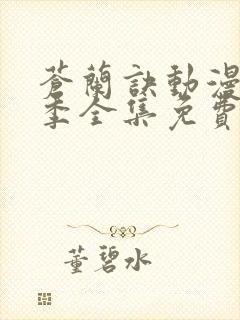 蒼蘭訣動漫
季全集免費
董碧水